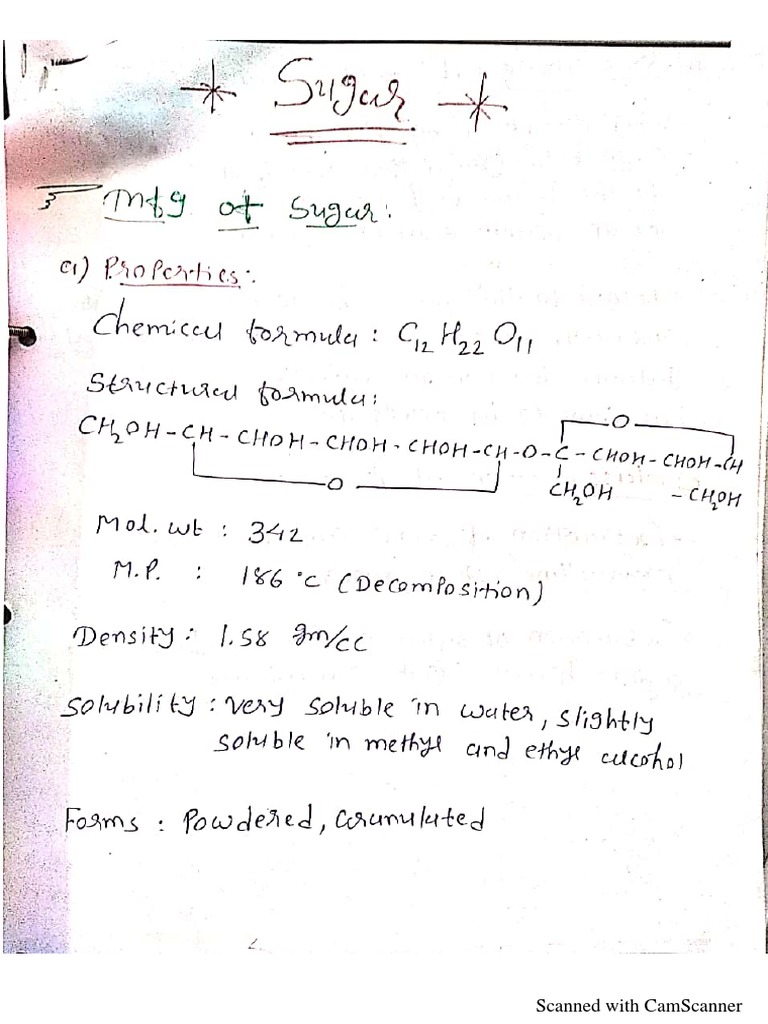 * Sugar *
Mfg of Sugar:
a) Properties:
Chemical formula: C12 H22 O11
Structural formula:
CH2OH-CH-CHOH-CHOH-CHOH-CH-O-C-CHOH-CHOH-CH
O
O
CH2OH -CH2OH
Mol. wt : 342
M.P. : 186 °C (Decomposition)
Density: 1.58 gm/cc
Solubility: very soluble in water, slightly
soluble in methyl and ethyl alcohol
Forms : Powdered, Granulated
Scanned with CamScanner